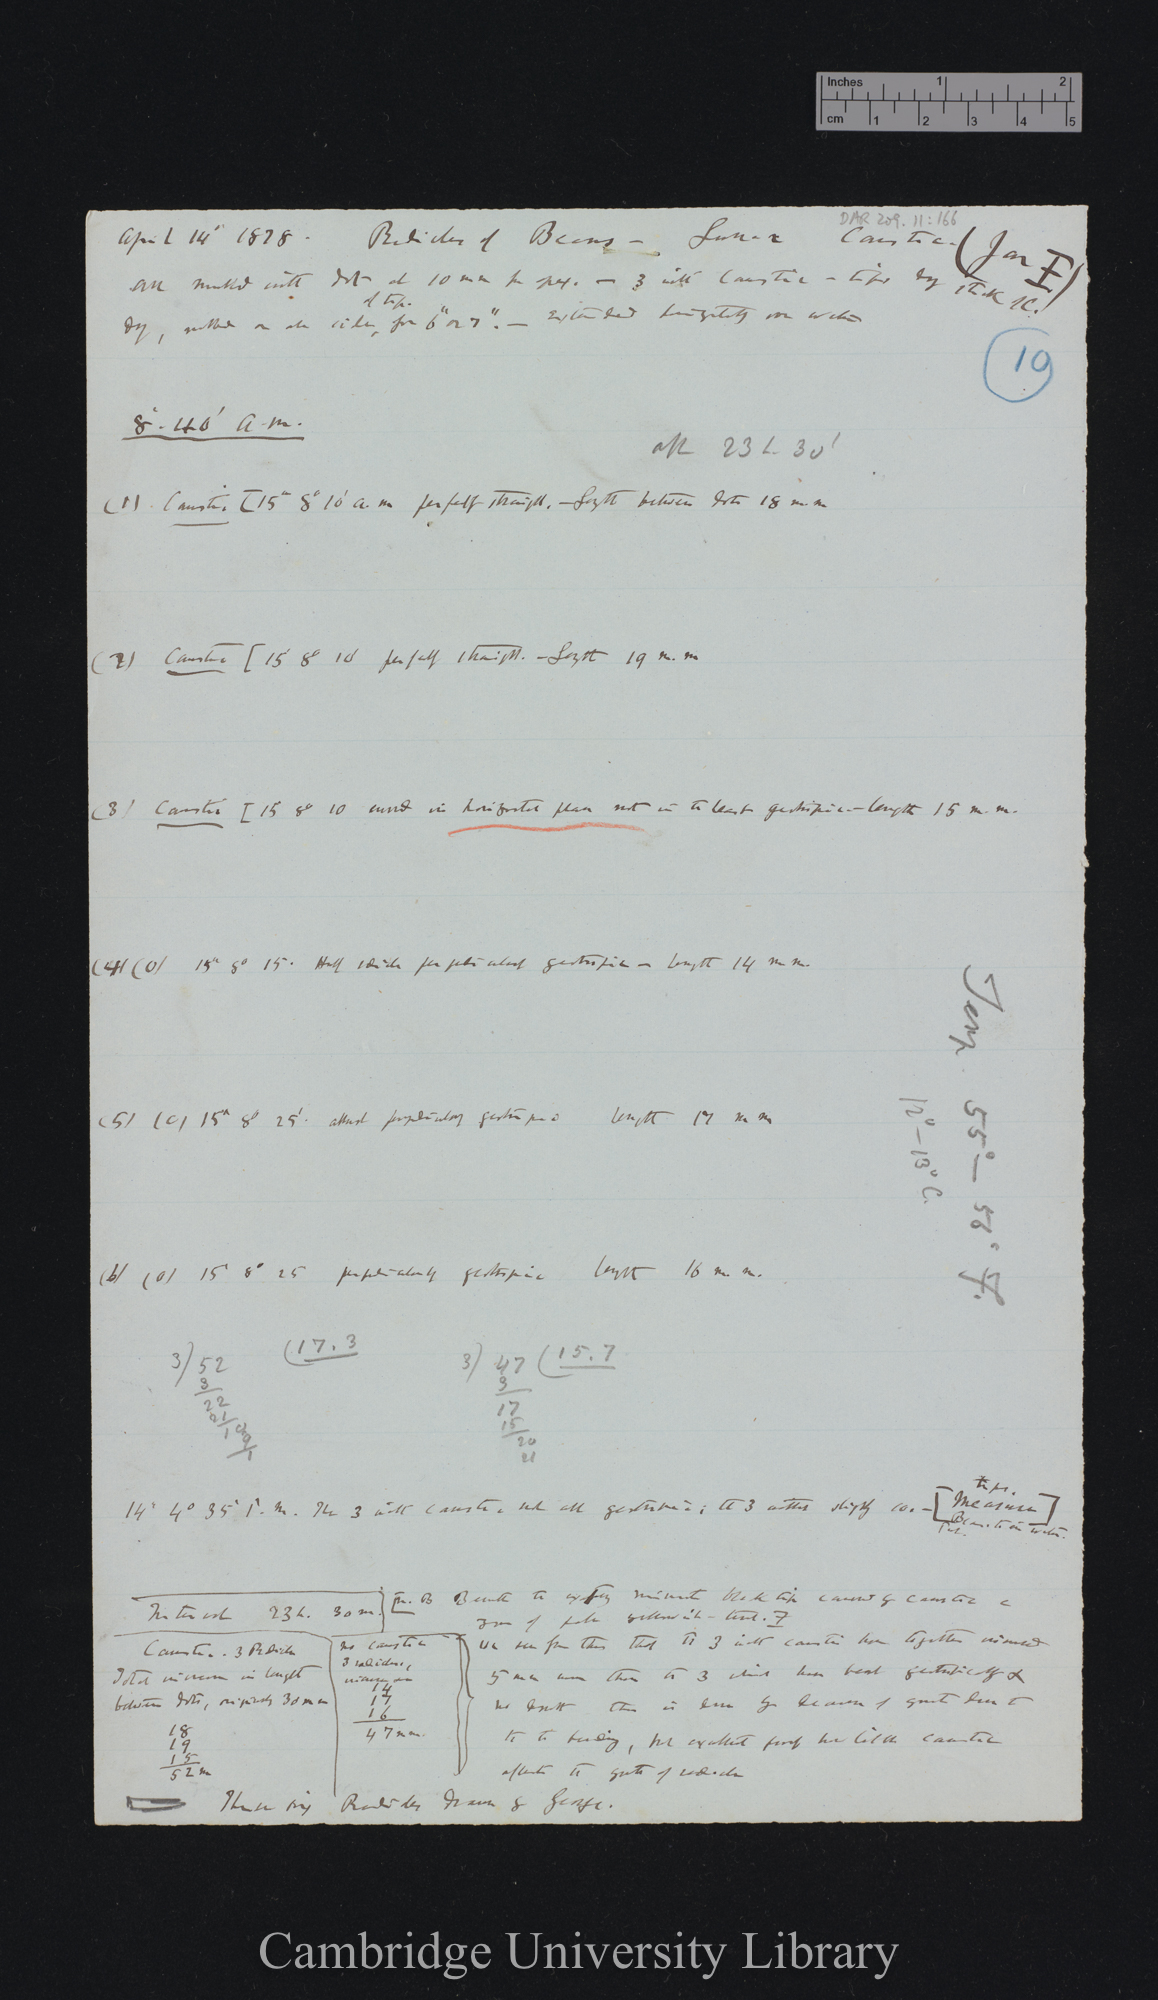 Inches 1 2
cm 1 2 3 4 5
DAR 209.11:166
April 14th 1878. Radicles of Beans — Lunar Caustic (Jar I)
All marked with dots at 10 mm fr apex. — 3 with Caustic — tips dry
of tip
dry, rubbed on one side, for 6" or 7". — extended horizontally over water
19
8° . 40' a.m.
aft 23 h. 30'
(1) Caustic [15th 8° 10' a.m perfectly straight. — Length between dots 18 m.m
(2) Caustic [15 8° 10' perfectly straight. — Length 19 m.m
(3) Caustic [15 8° 10 curved in horizontal plane not in the least geotropic — length 15 m.m.
(4) (0) 15th 8° 15. Half radicle perpendicularly geotropic — length 14 m m.
(5) (0) 15th 8° 25'. almost perpendicularly geotropic length 17 m m
(6) (0) 15 8° 25 perpendicularly geotropic length 16 m.m.
Temp. 55° — 56° F.
12° – 13° C.
3) 52 (17.3
3
22
21
10
9
1
3) 47 (15.7
3
17
15
20
21
14th 4° 35' P.M. The 3 with caustic not at all geotropic; the 3 others slightly so. — [Measure tips.
Beans to in water.
Interval 23 h. 30 m.
[N.B Beneath the excessively minute black tip caused by caustic a
zone of pale yellowish-tint.
Caustic. 3 Radicles
Total increase in length
between dots, originally 30 mm
18
19
15
52 m
no caustic
3 radicles,
increase
14
17
16
47 m.m.
We see from this that the 3 with caustic have together increased
5 mm more than the 3 which have bent geotropically &
no doubt this is due to decrease of growth due to
the bending, but excellent proof how little caustic
affects the growth of radicle
These six Radicles drawn by George.
Cambridge University Library